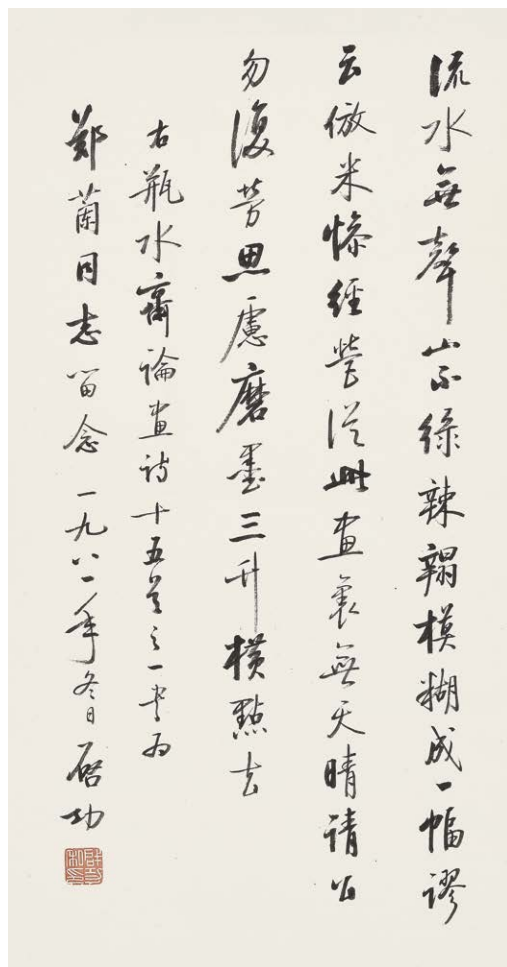 流水無聲山不綠辣蹋模糊成一幅謬
云倣米慘經營從此畫裏無天晴請公
勿復勞思慮磨墨三升橫點去
古瓶水齋論畫詩十五首之一書為
鄭蘭同志留念一九八一年冬日啓功